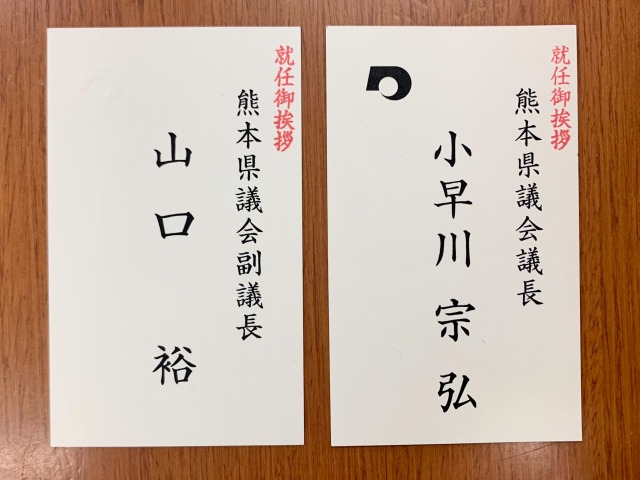 就任御挨拶
熊本県議会議長
小早川宗弘
就任御挨拶
熊本県議会副議長
山口裕